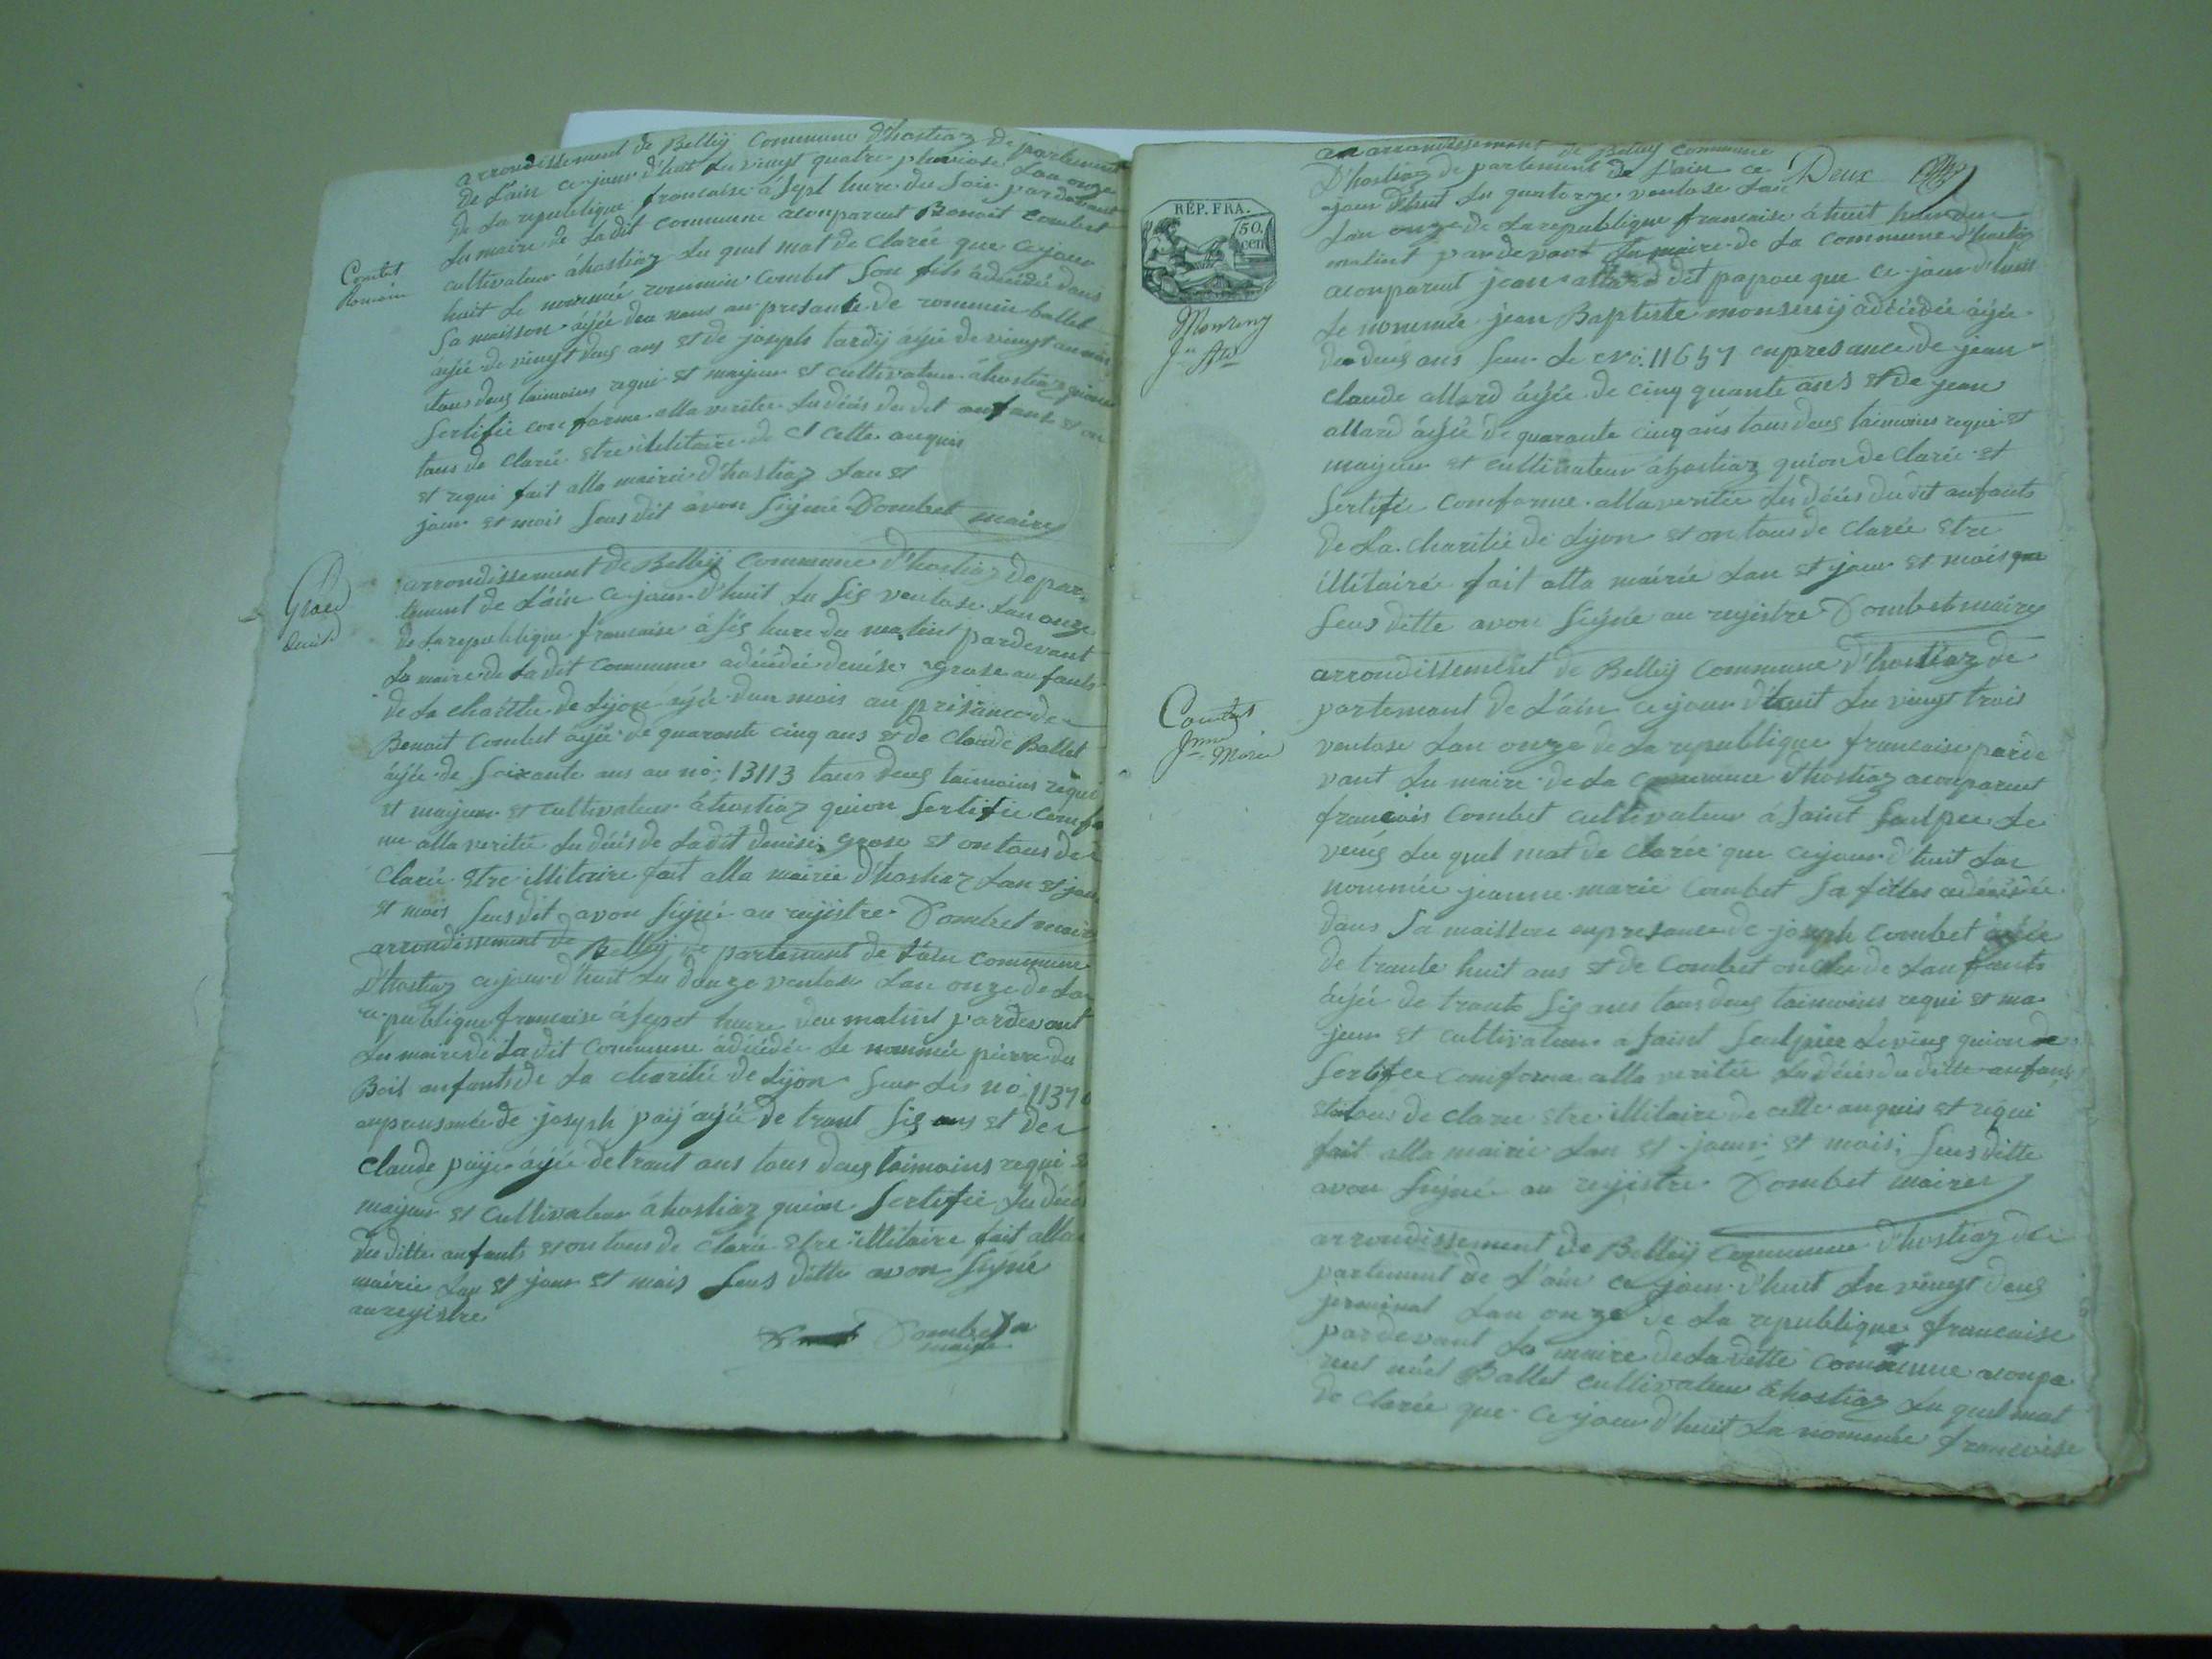 arrondissement de Belleÿ Commune d'hostiaz de partement
de L'ain ce jour d'huit du vingt quatre pluviose Lan onze
de La republique francaise á sept hure du soir pardevant
Lu maire de La dit Commune aconparut Benoit Combet
Combet
Romain
cultivateur áhostiaz Lu quel mat de clarée que ce jour
huit Le nommée rommin Combet son fils adécédé dans
sa maisson áÿée deu nous au presante de rommin ballet
áÿée de vingt deus ans et de joseph tardÿ áÿée de vingt
tous deus taimoins requi et majeur et cultivateur áhostiaz
Sertifie conforme alla veritée Lu décés du dit anfant et on
tous de clarée etre illitaire de cela anquis
et requi fait alla mairie d'hostiaz Lan et
jour et mois sous dit avon Signé Combet maire
arrondissement de Belleÿ Commune d'hostiaz de par
Grase
denise
tement de L'áin ce jour d'huit Lu sis ventose Lan onze
de La republique francaise á sis hure du matint pardevant
Lu maire de La dit Commune adécédée denise grase anfants
de La charitée de Lÿon áÿée d'un mois au présance de
Benoit Combet áÿée de quarante cinq ans et de Claude Ballet
áÿée de soixante ans au nò: 13113 tous deus taimoins requi
et majeur et cultivateur áhostiaz quion Sertifie Confor
me alla veritée Lu décés de La dit denise grose et on tous de
clarée etre illitaire fait alla mairie d'hostiaz Lan et jour
et mois sus dit avon signé au rejistre Combet maire
arrondissement de Belleÿ de partement de L'áin Commune
d'hostiaz ce jour d'huit Lu douze ventose Lan onze de La
republique francaise á sept hure deu matint pardevant
Lu maire de La dit Commune ádécédée Le nommée pierre du
Bois anfants de La charitée de Lÿon sur Les nò 1137
anpresance de joseph páÿ áÿée de trant sis ans et de
Claude páÿe áÿée de trant ans tous deus taimoins requi et
majeur et Cultivateur áhostiaz quion Sertifie Lu décés
du ditte anfants et on tous de clarée etre illitaire fait alla
mairie Lan et jour et mois sus ditte avon Signé
au rejistre
Combet
maire
an arrondissement de Belley Commune
D'hostiaz de partement de L'ain ce
Deux
jour d'huit Lu quatorze ventose
RÉP. FRA.
50.
cen
Lan onze de La republique francaise á huit hure deu
matint pardevant Lu maire de La Commune d'hostiaz
aconparut jean allard dit papou que ce jour d'huit
Le nommée jean Baptiste monsenÿ adécédée áÿée
de deus ans sur Le nò. 11657 enpresance de jean
Claude allard áÿée de cinq quante ans et de jean
allard áÿée de quarante cinq ans tous deus taimoins requi et
majeur et cultivateur áhostiaz quion de clarée et
Sertifie Comforme alla veritée Lu décés du dit anfants
de La charitée de Lÿon et on tous de clarée etre
illitaire fait alla mairie Lan et jour et mois que
sus ditte avon Signé au rejistre Combet maire
arrondissement de Belleÿ Commune d'hostiaz de
Combet
Jnne Marie
partement de L'áin ce jour d'huit Lu vingt trois
ventose Lan onze de La republique francaise parde
vant Lu maire de La Commune d'hostiaz aconparut
francois Combet cultivateur á saint Sulpce Le
veús Lu quel mat de clarée que ce jour d'huit La
nommée jeanne marie Combet sa fille adécédée
dans sa maisson enpresance de joseph Combet áÿée
de trante huit ans et de Combet oncle de Lan fants
áÿée de trante sis ans tous deus taimoins requi et ma
jeur et cultivateur a saint Sulpice Leviux quion
Sertifie Conforme alla veritée Lu décés du ditte anfans
et tous de clare etre illitaire de cette anquis et requi
fait alla mairie Lan et jour et mois sus ditte
avon Signé au rejistre Combet maire
arrondissement de Belleÿ Commune d'hostiaz de
partement de L'áin ce jour d'huit Lu vingt deus
jerminal Lan onze de La republique francaise
pardevant Lu maire de La ditte Commune aconpa
rut Ballet cultivateur áhostiaz Lu quel mat
de clarée que ce jour d'huit La nommée francoise